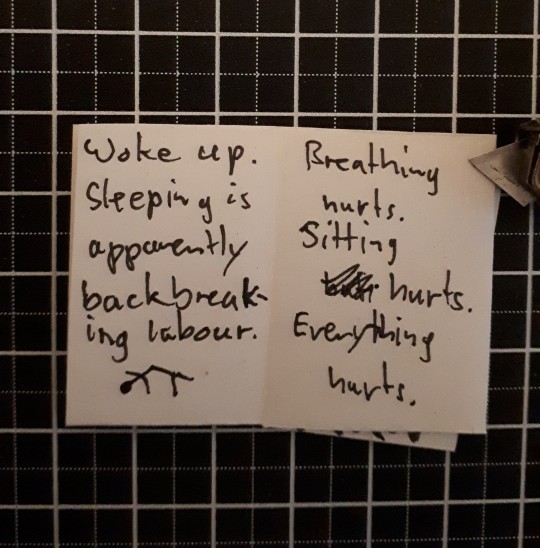 Woke up.
Sleeping is
apparently
backbreak-
ing labour.
Breathing
hurts.
Sitting
hurts.
Everything
hurts.